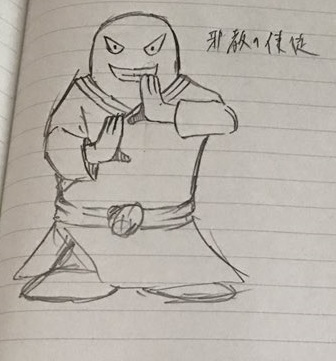 邪教の使徒